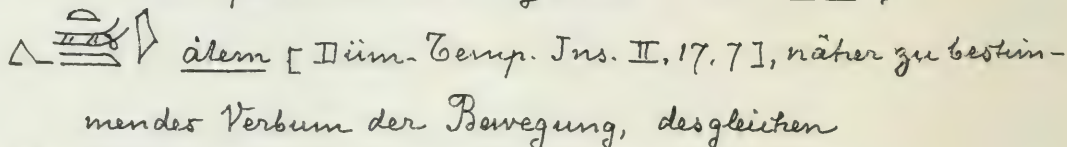 átem [Düm. Temp. Ins. II, 17, 7], näher zu bestim-
mendes Verbum der Bewegung, desgleichen